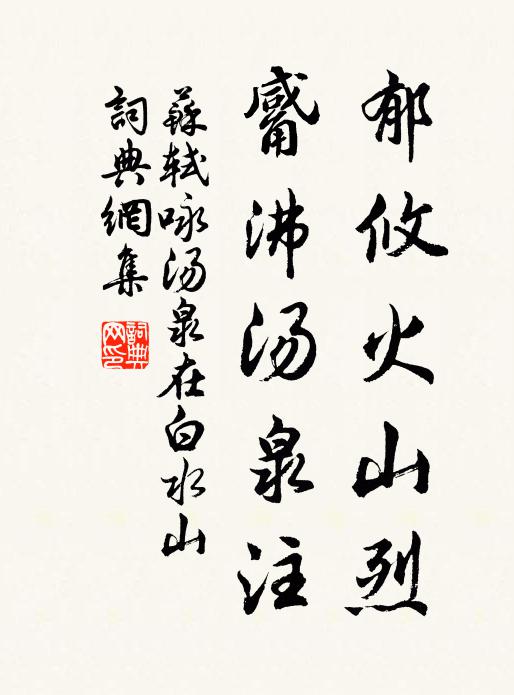 郁攸火山烈
觱沸汤泉注
蘇轼咏汤泉在白水山
詞典網集
詞典网印